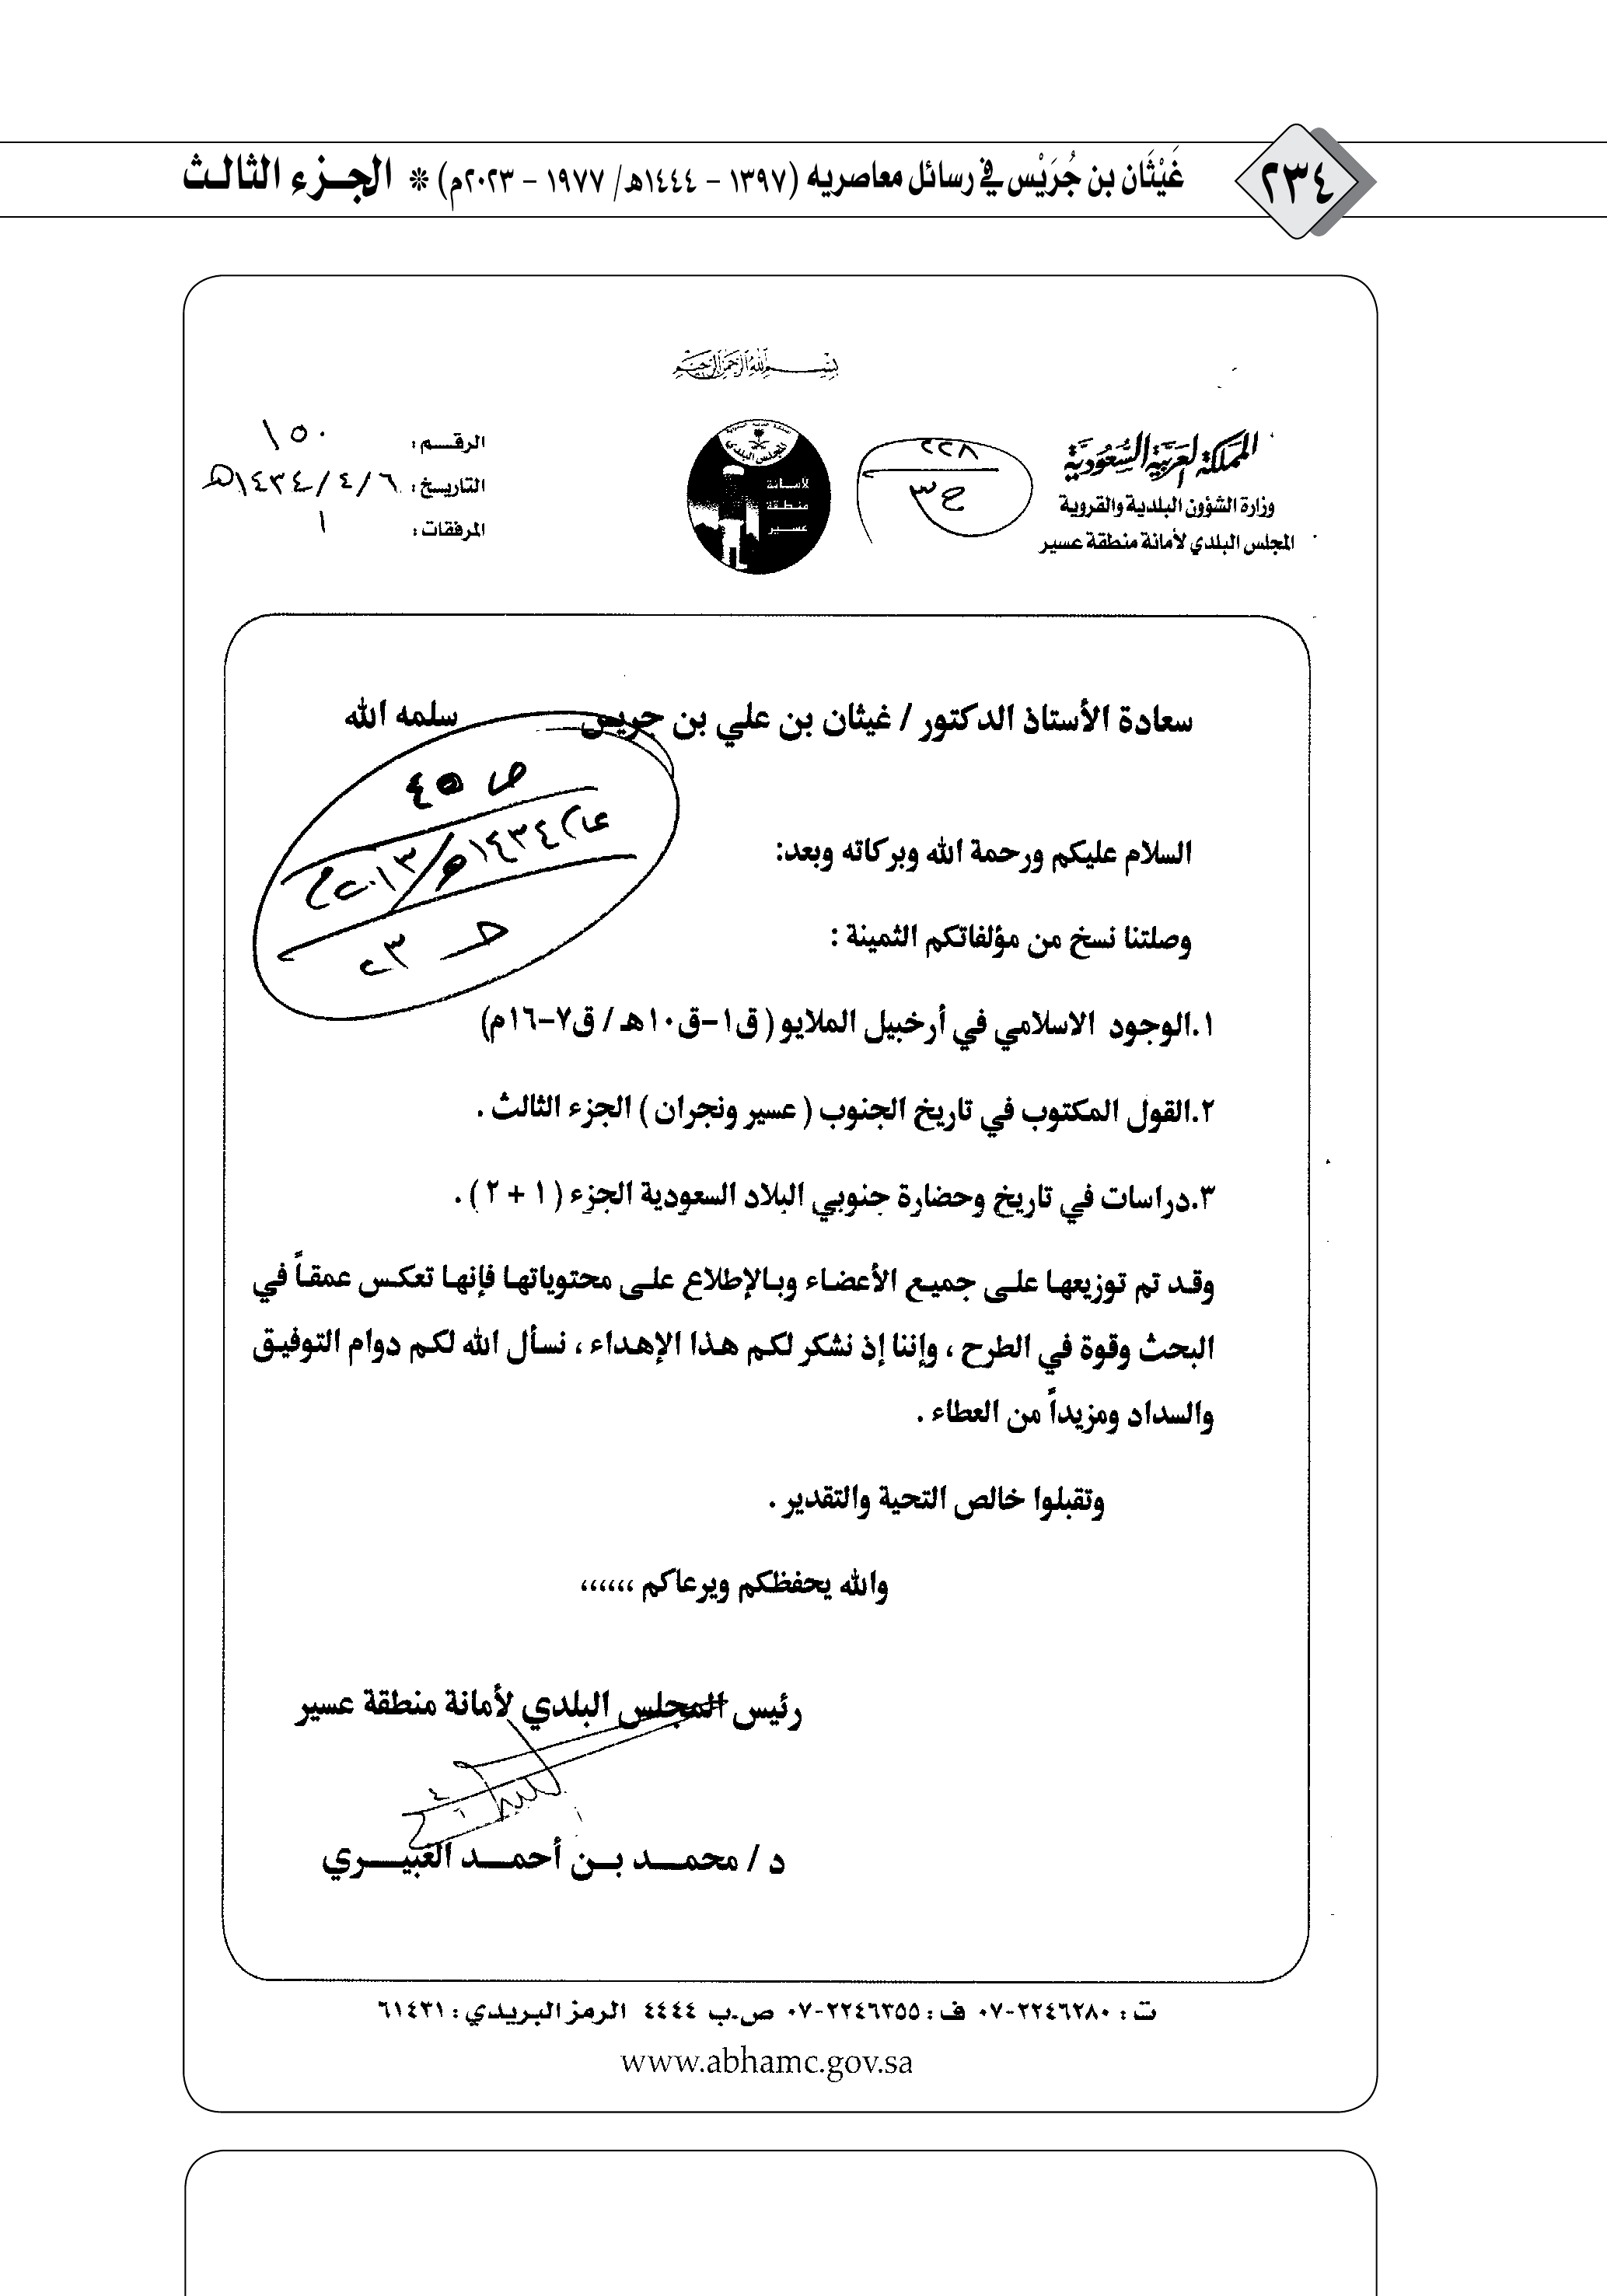 ٢٣٤
غَيْثَان بن جُرَيْس في رسائل معاصريه (١٣٩٧ – ١٤٤٤هـ/ ١٩٧٧ – ٢٠٢٣م) * الجزء الثالث
بسم الله الرحمن الرحيم
المملكة العربية السعودية
وزارة الشؤون البلدية والقروية
المجلس البلدي لأمانة منطقة عسير
٢٢٨
ج٣
المجلس البلدي
لأمانة
منطقة
عسير
الرقم : ١٥٠
التاريخ : ١٤٣٤/٤/٦هـ
المرفقات : ١
سعادة الأستاذ الدكتور / غيثان بن علي بن جريس سلمه الله
ص ٤٥
عام ١٤٣٤هـ/٢٠١٣م
السلام عليكم ورحمة الله وبركاته وبعد:
وصلتنا نسخ من مؤلفاتكم الثمينة :
١.الوجود الاسلامي في أرخبيل الملايو ( ق١–ق١٠هـ / ق٧–١٦م)
٢.القول المكتوب في تاريخ الجنوب ( عسير ونجران ) الجزء الثالث .
٣.دراسات في تاريخ وحضارة جنوبي البلاد السعودية الجزء ( ١ + ٢ ) .
وقد تم توزيعها على جميع الأعضاء وبالإطلاع على محتوياتها فإنها تعكس عمقاً في
البحث وقوة في الطرح ، وإننا إذ نشكر لكم هذا الإهداء ، نسأل الله لكم دوام التوفيق
والسداد ومزيداً من العطاء .
وتقبلوا خالص التحية والتقدير .
والله يحفظكم ويرعاكم ،،،،،،
رئيس المجلس البلدي لأمانة منطقة عسير
د / محمد بن أحمد العبيري
ت : ٢٢٤٦٢٨٠-٠٧ ف : ٢٢٤٦٣٥٥-٠٧ ص.ب ٤٤٤٤ الرمز البريدي : ٦١٤٣١
www.abhamc.gov.sa